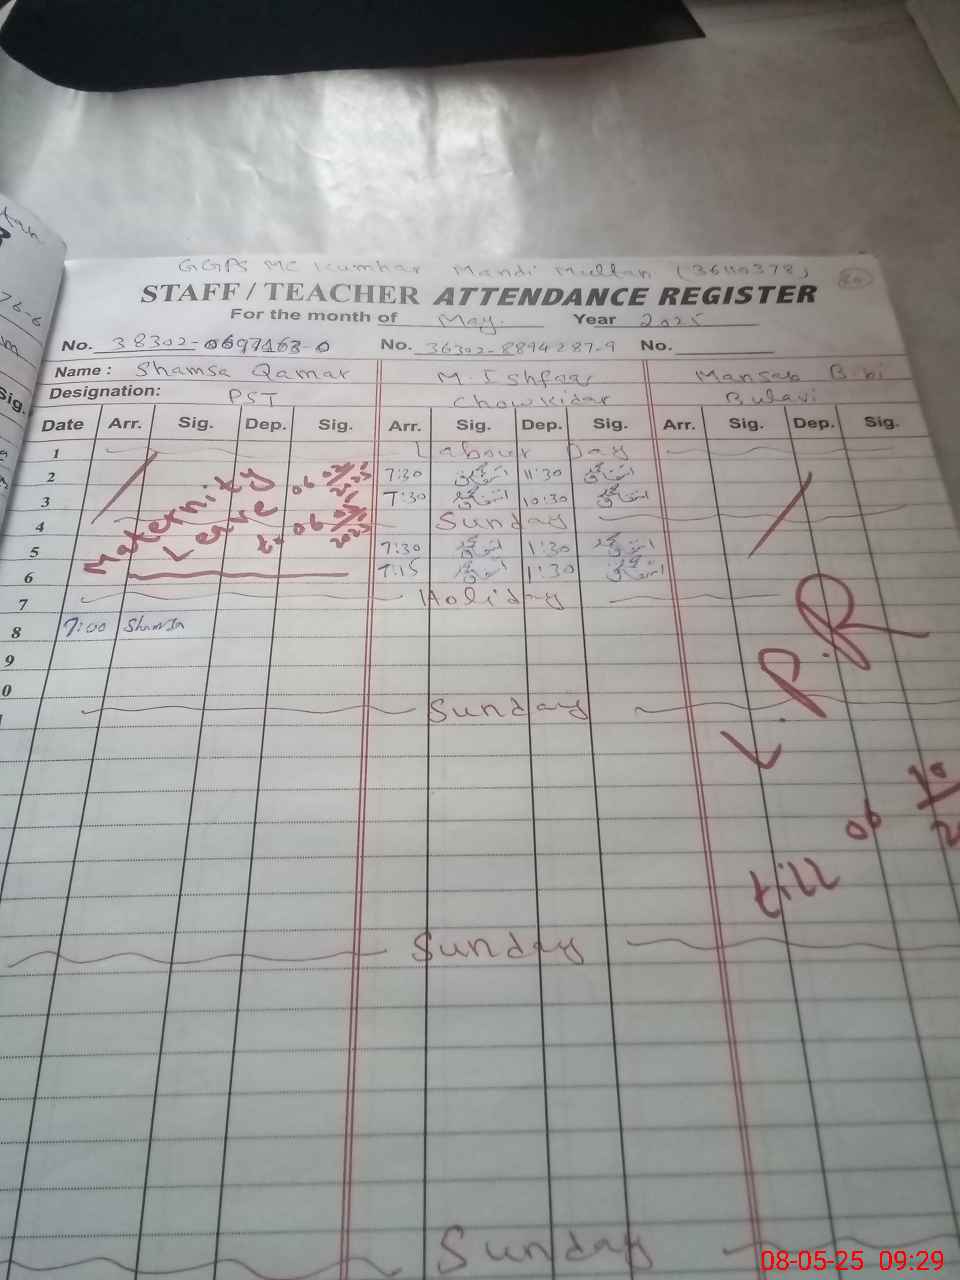 GGPS MC Kumhar Mandi Multan (36110378)
STAFF / TEACHER ATTENDANCE REGISTER
For the month of May. Year 2025
No. 38302-0697163-0 No. 36302-8894287-9 No.
Name : Shamsa Qamar M. Ishfaq Mansab Bibi
Designation: PST Chowkidar Bulavi
Date Arr. Sig. Dep. Sig. Arr. Sig. Dep. Sig. Arr. Sig. Dep. Sig.
1 Labour Day
2 7:30 11:30
3 7:30 10:30
4 Sunday
5 7:30 1:30
6 7:15 1:30
Maternity
Leave
to 06
7 Holiday
8 7:00 Shamsa
9
0
Sunday
P.R
till 06
Sunday
Sunday
08-05-25 09:29